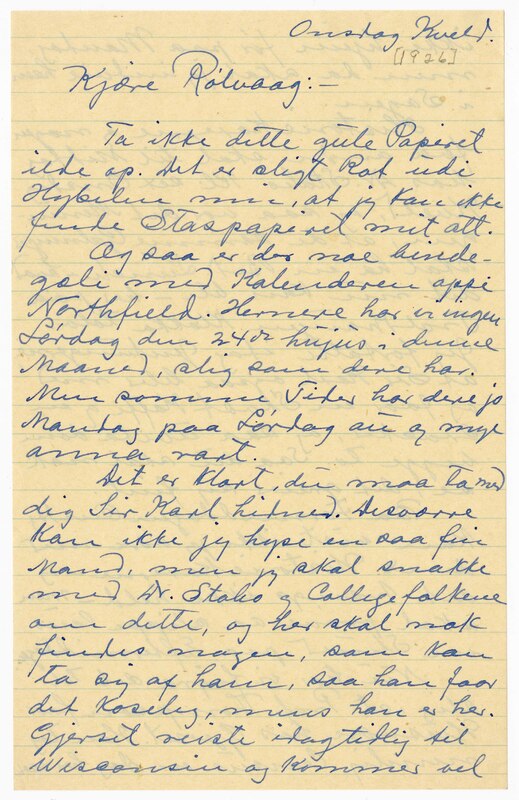 Onsdag Kveld.
[1926]
Kjære Rølvaag:—
Ta ikke dette gule Papiret
ilde op. Det er sligt Rot udi
Hybilen min, at jeg kan ikke
finde Staspapiret mit att.
Og saa er der noe binde-
gæli med Kalenderen oppi
Northfield. Hernere har vi ingen
Lørdag den 24de hujus i denne
Maaned, slig som dere har.
Men somme Tider har dere jo
Mandag paa Lørdag au og mye
anna rart.
Det er klart, du maa ta med
dig Sir Karl hidned. Desværre
kan ikke jeg hyse en saa fin
Mand, men jeg skal snakke
med Dr. Stabo og Collegefolkene
om dette, og her skal nok
findes nogen, som kan
ta sig af ham, saa han faar
det koselig, mens han er her.
Gjerset reiste idag tidlig til
Wisconsin og kommer vel